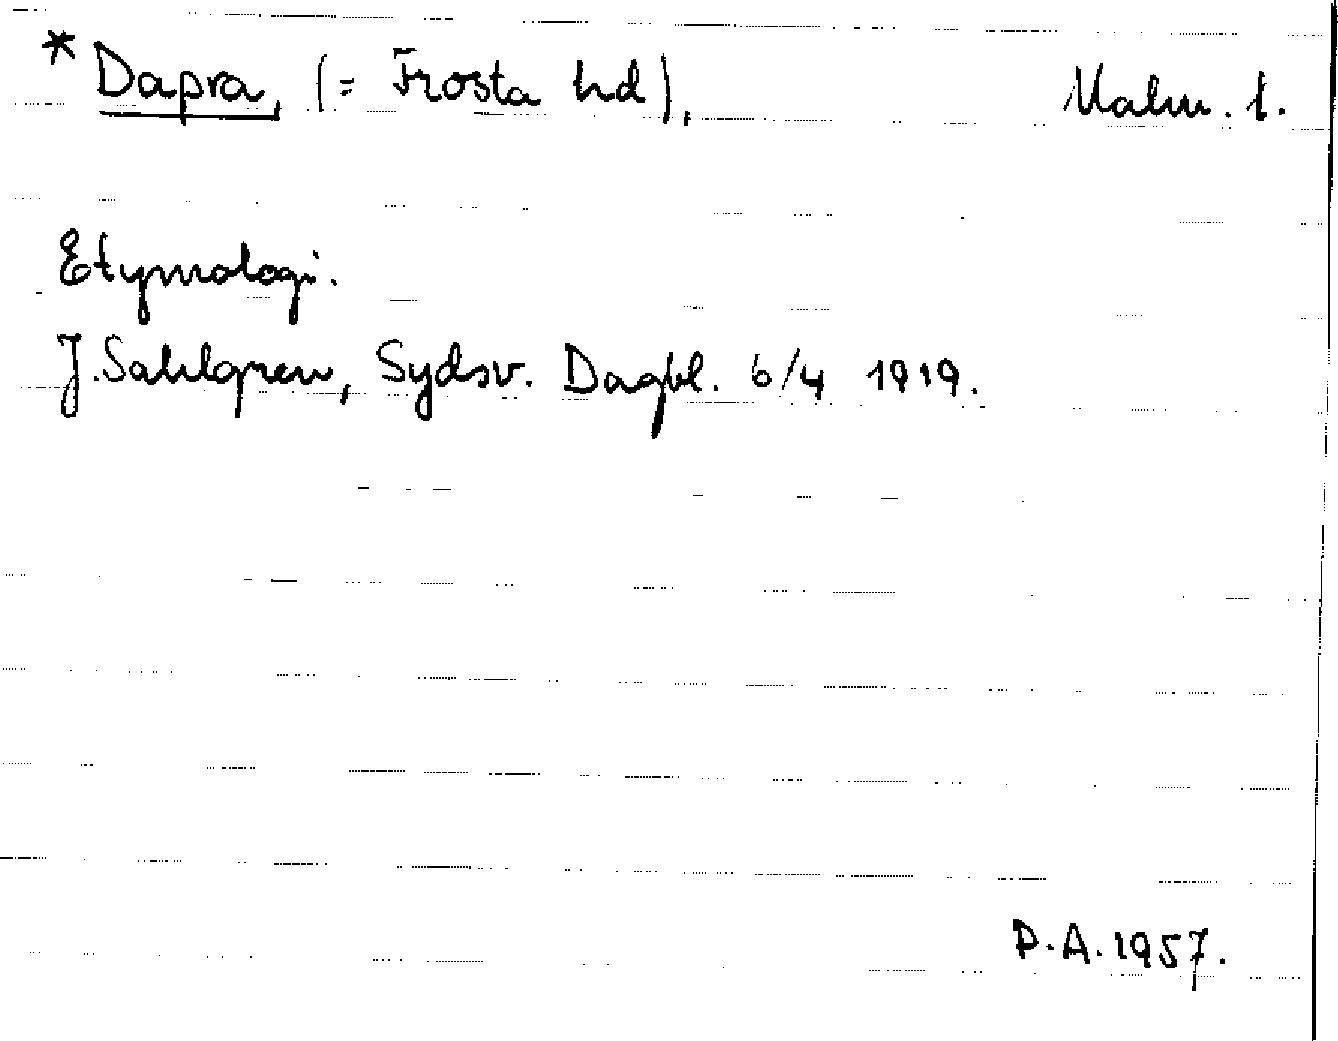 * Dapra, (= Frosta hd), Malm. l.
Etymologi.
J. Sahlgren, Sydsv. Dagbl. 6/4 1919.
D.A. 1957.